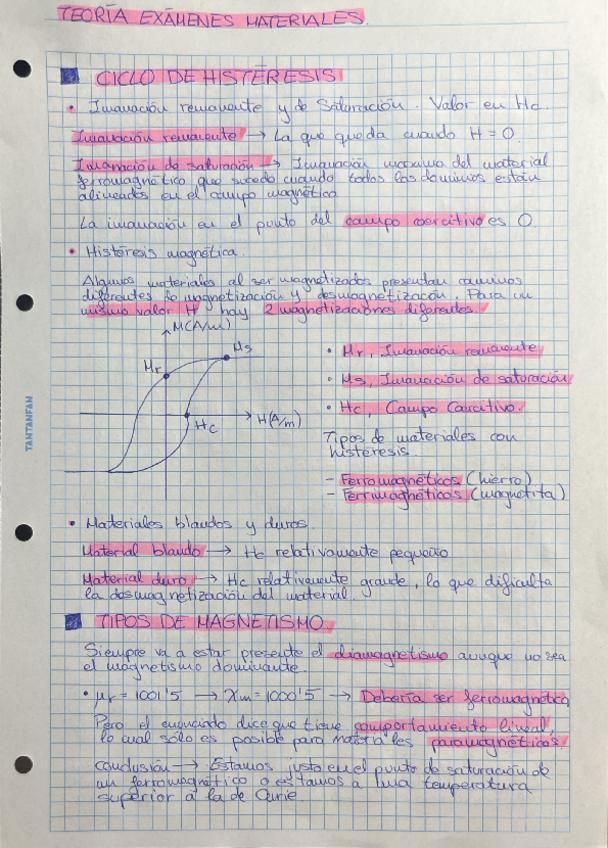 TEORÍA EXÁMENES MATERIALES.
CICLO DE HISTÉRESIS
• Imanación remanente y de Saturación. Valor en Hc.
Imanación remanente → La que queda cuando H = 0.
Imanación de saturación → Imanación máxima del material
ferromagnético que sucede cuando todos los dominios están
alineados en el campo magnético
La imanación en el punto del campo coercitivo es 0
• Histéresis magnética.
Algunos materiales al ser magnetizados presentan caminos
diferentes de magnetización y desmagnetización. Para un
mismo valor H hay 2 magnetizaciones diferentes.
M(A/m)
Ms
Mr
Hc
H(A/m)
• Mr, Imanación remanente
• Ms, Imanación de saturación
• Hc, Campo Coercitivo.
Tipos de materiales con
histéresis
- Ferromagnéticos (hierro)
- Ferrimagnéticos (magnetita)
TANTANFAN
• Materiales blandos y duros.
Material blando → Hc relativamente pequeño
Material duro → Hc relativamente grande, lo que dificulta
la desmagnetización del material.
TIPOS DE MAGNETISMO.
Siempre va a estar presente el diamagnetismo aunque no sea
el magnetismo dominante.
• μr = 1001'5 → χm = 1000'5 → Debería ser ferromagnético
Pero el enunciado dice que tiene comportamiento lineal,
lo cual sólo es posible para materiales paramagnéticos.
Conclusión → Estamos justo en el punto de saturación de
un ferromagnético o estamos a una temperatura
superior a la de Curie